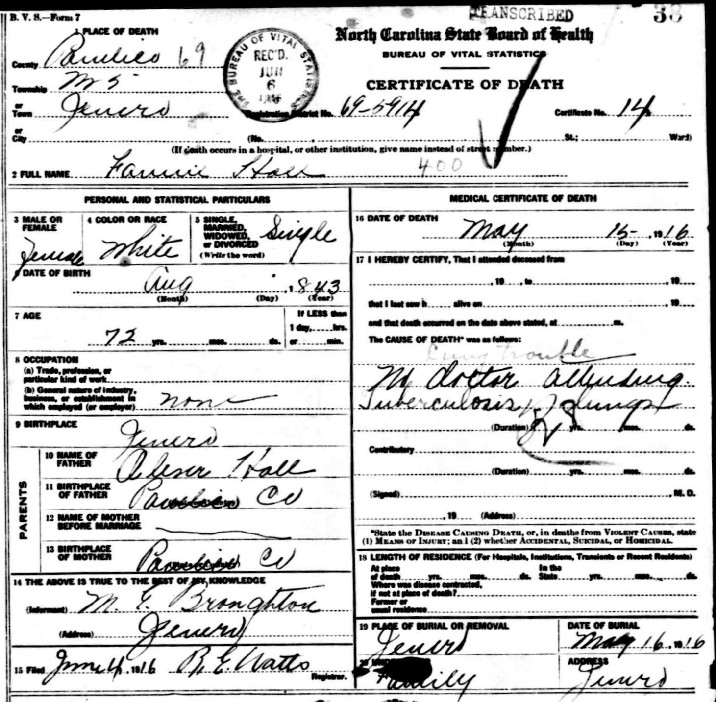 B. V. S.—Form 7
TRANSCRIBED
38
1 PLACE OF DEATH
North Carolina State Board of Health
BUREAU OF VITAL STATISTICS
CERTIFICATE OF DEATH
County Pamlico 69
THE BUREAU OF VITAL STATISTICS
REC'D.
JUN
6
1916
Township No 5
or
Town
Registration District No. 69-5914 Certificate No. 14
or
City (No. St.; Ward)
(If death occurs in a hospital, or other institution, give name instead of street number.)
400
2 FULL NAME Fannie Hall
PERSONAL AND STATISTICAL PARTICULARS
3 MALE OR FEMALE Female
4 COLOR OR RACE White
5 SINGLE, MARRIED, WIDOWED, or DIVORCED (Write the word) Single
6 DATE OF BIRTH
Aug 1843
(Month) (Day) (Year)
7 AGE
72 yrs. mos. ds.
If LESS than 1 day, hrs. or min.
8 OCCUPATION
(a) Trade, profession, or particular kind of work
(b) General nature of industry, business, or establishment in which employed (or employer) none
9 BIRTHPLACE
PARENTS
10 NAME OF FATHER Hall
11 BIRTHPLACE OF FATHER Co
12 NAME OF MOTHER BEFORE MARRIAGE
13 BIRTHPLACE OF MOTHER Co
14 THE ABOVE IS TRUE TO THE BEST OF MY KNOWLEDGE
(Informant) M. E. Broughton
(Address)
15 Filed June 4 1916 R E Watts
Registrar.
MEDICAL CERTIFICATE OF DEATH
16 DATE OF DEATH
May 15 1916
(Month) (Day) (Year)
17 I HEREBY CERTIFY, That I attended deceased from
, 19 , to , 19
that I last saw h alive on , 19
and that death occurred on the date above stated, at m.
The CAUSE OF DEATH* was as follows:
Lung trouble
No doctor attending.
Tuberculosis of lungs
(Duration) yrs. mos. ds.
Contributory
(Duration) yrs. mos. ds.
(Signed) , M. D.
, 19 (Address)
*State the DISEASE CAUSING DEATH, or, in deaths from VIOLENT CAUSES, state
(1) MEANS OF INJURY; and (2) whether ACCIDENTAL, SUICIDAL, or HOMICIDAL.
18 LENGTH OF RESIDENCE (For Hospitals, Institutions, Transients or Recent Residents)
At place of death yrs. mos. ds. In the State yrs. mos. ds.
Where was disease contracted, if not at place of death?
Former or usual residence
19 PLACE OF BURIAL OR REMOVAL
DATE OF BURIAL
May 16 1916
20
Family
ADDRESS